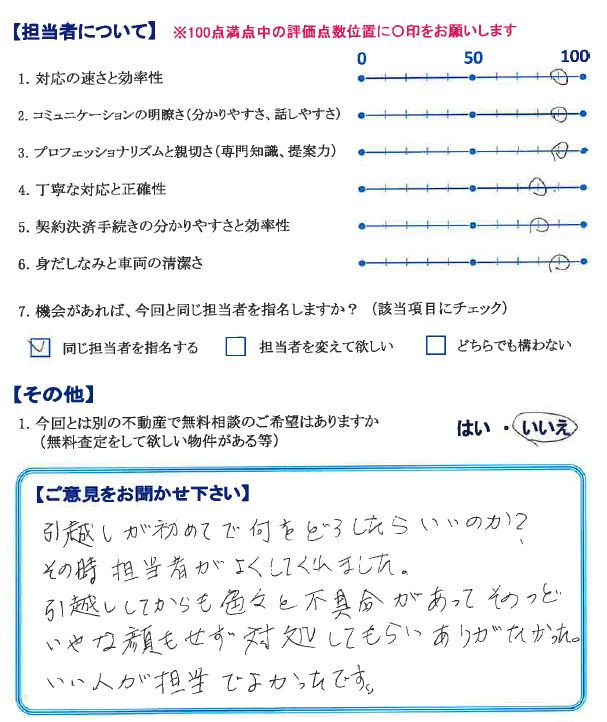 【担当者について】 ※100点満点中の評価点数位置に〇印をお願いします
0 50 100
1. 対応の速さと効率性
2. コミュニケーションの明瞭さ(分かりやすさ、話しやすさ)
3. プロフェッショナリズムと親切さ(専門知識、提案力)
4. 丁寧な対応と正確性
5. 契約決済手続きの分かりやすさと効率性
6. 身だしなみと車両の清潔さ
7. 機会があれば、今回と同じ担当者を指名しますか? (該当項目にチェック)
同じ担当者を指名する 担当者を変えて欲しい どちらでも構わない
【その他】
1. 今回とは別の不動産で無料相談のご希望はありますか
(無料査定をして欲しい物件がある等)
はい ・ いいえ
【ご意見をお聞かせ下さい】
引越しが初めてで何をどうしたらいいのか?
その時担当者がよくしてくれました。
引越ししてからも色々と不具合があってそのつど
いやな顔もせず対処してもらいありがたかった。
いい人が担当でよかったです。